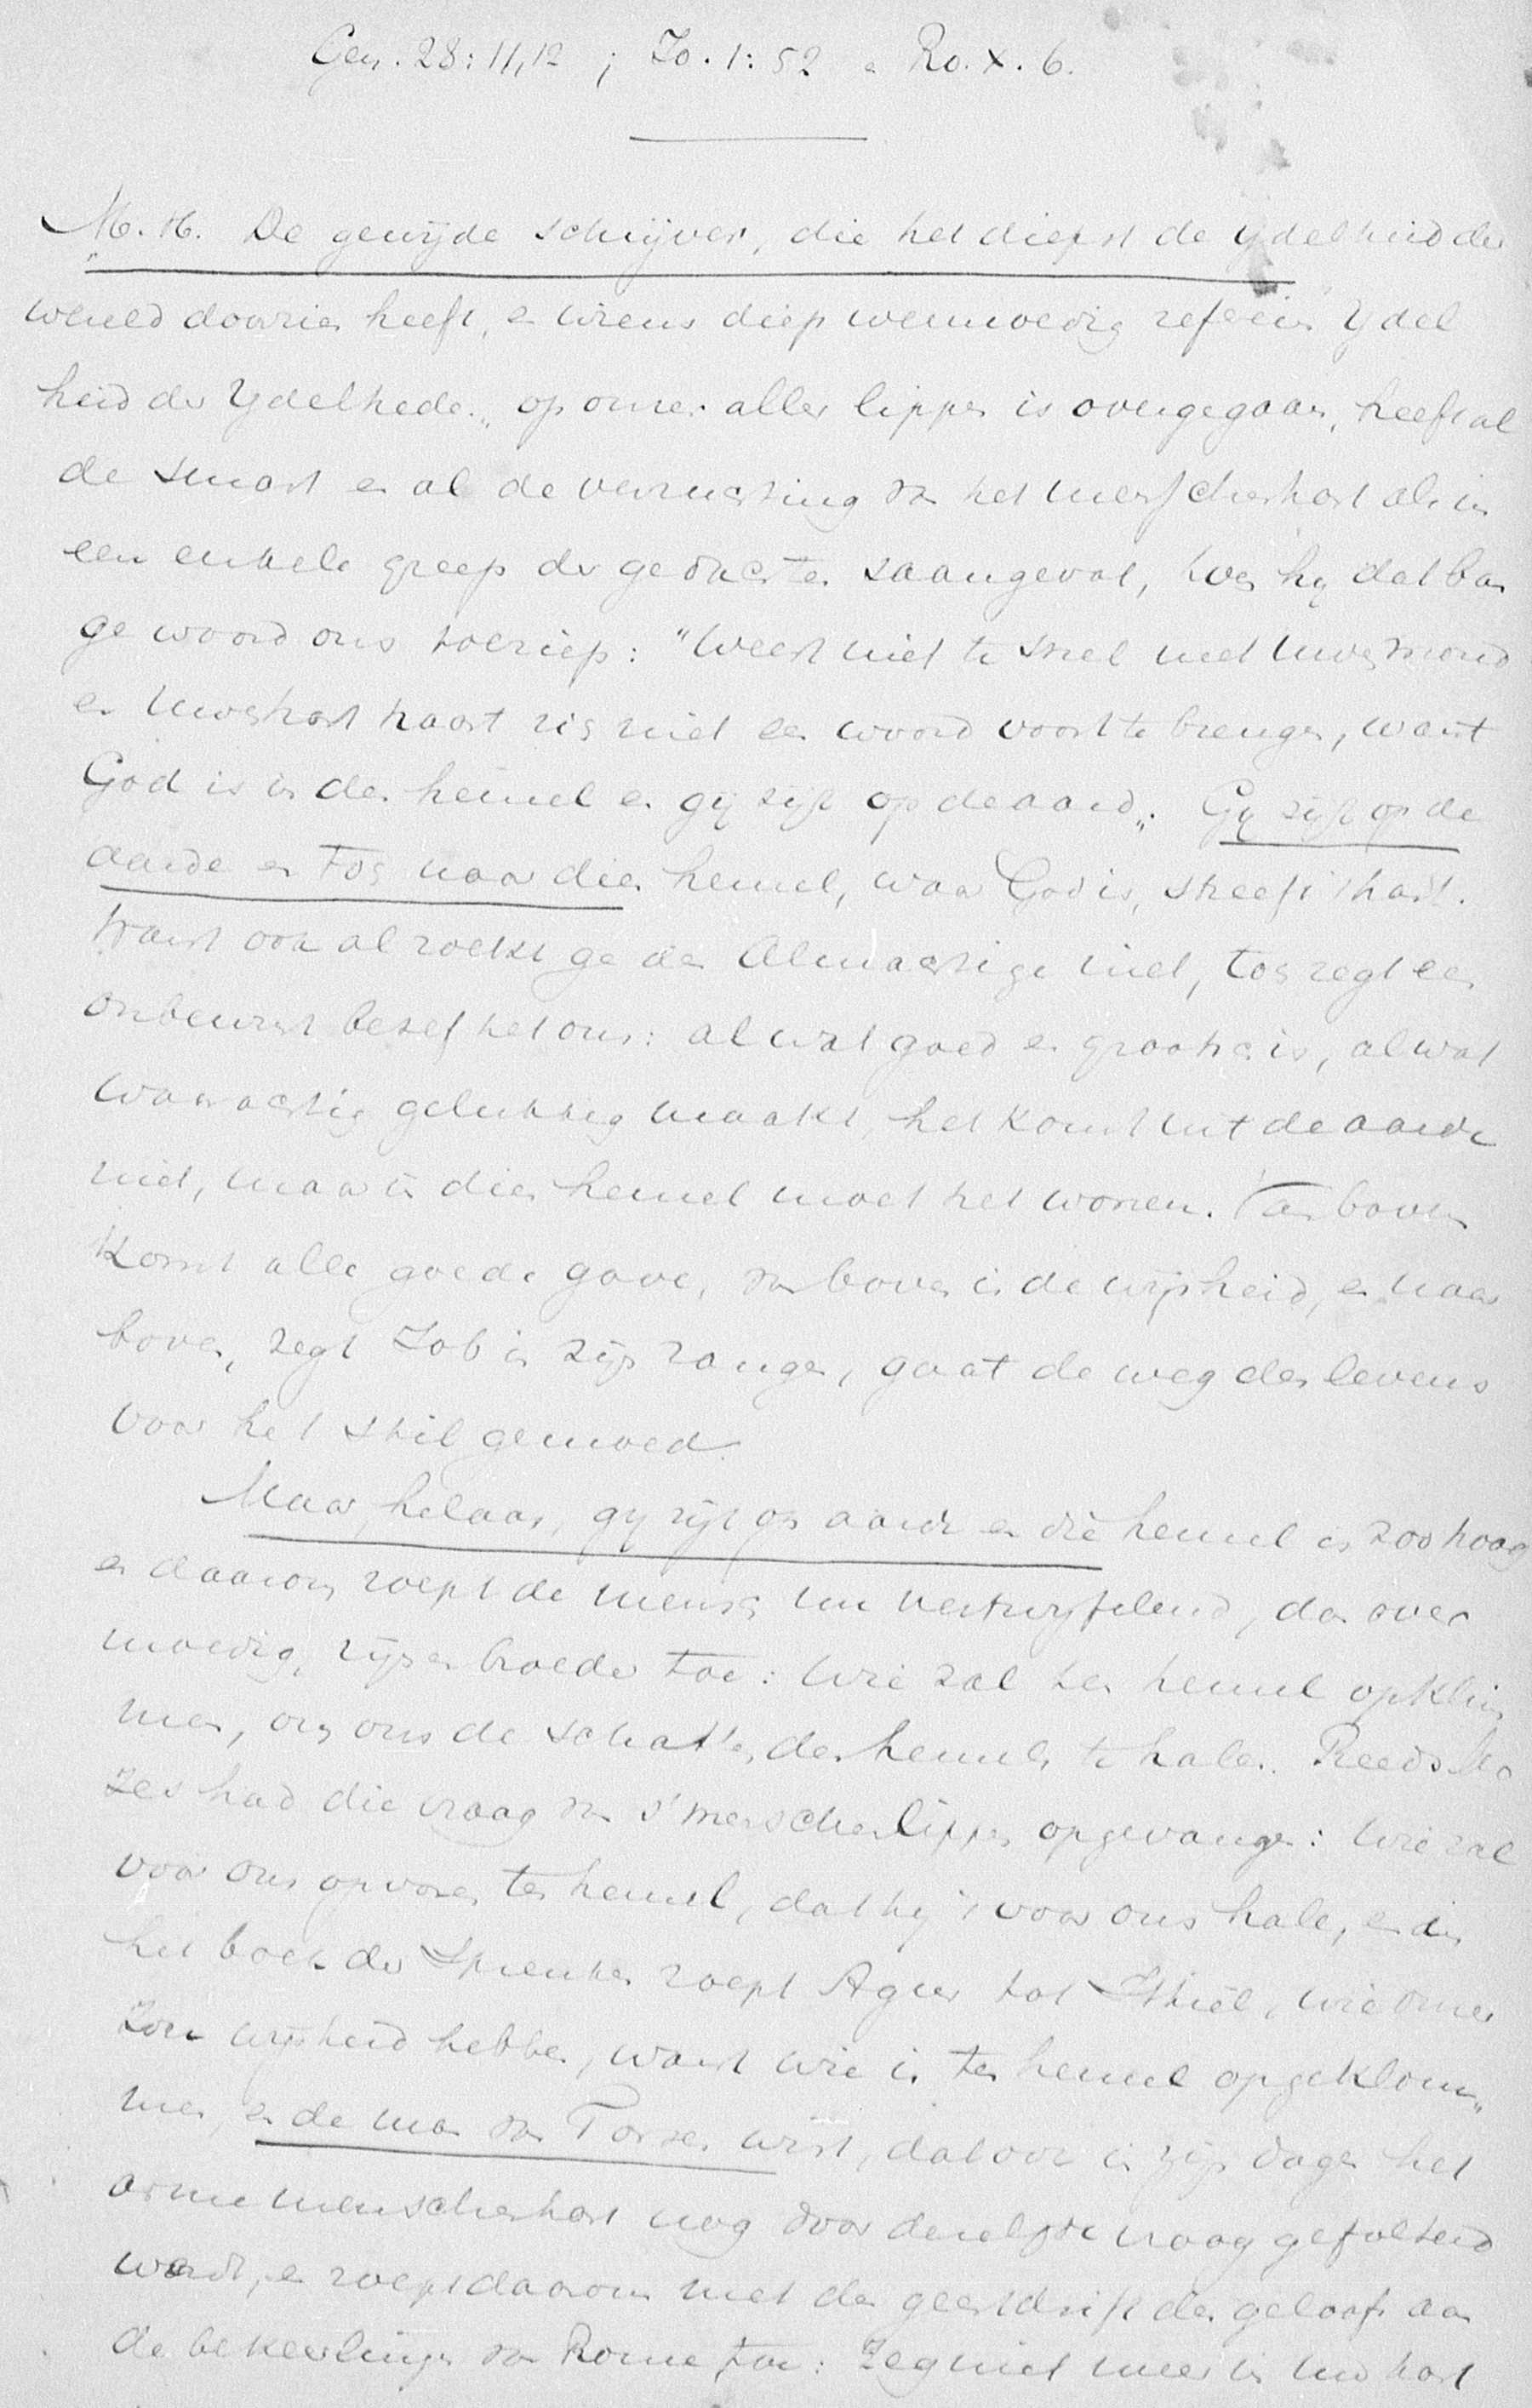 Gen. 28:11,12 ; Jo. 1:52 e Ro. X. 6.
M. H. De gewijde schrijver, die het diepst de ydelheid der
wereld doorzien heeft, en wiens diep weemoedig refrein "Ydel
heid der Ydelheden" op onzer aller lippen is overgegaan, heeft al
de smart en al de verzuchting van het menschenhart als in
een enkele greep der gedachten saamgevat, toen hy dat ban
ge woord ons toeriep: "Weest niet te snel met uwen mond
en uw hart haast zich niet een woord voort te brengen, want
God is in den hemel en gij zijt op de aard". Gy zijt op de
aarde en toch naar dien hemel, waar God is, streeft 't hart.
Want ook al zoekt ge den Almachtige niet, toch zegt een
onbewust besef het ons: al wat goed en groots is, al wat
waarachtig gelukkig maakt, het komt uit de aarde
niet, maar in dien hemel moet het wonen. Van boven
komt alle goede gave, van boven is de wijsheid, en naar
boven, zegt Job in zijn zangen, gaat de weg des levens
voor het stil gemoed.
Maar, helaas, gy zyt op aarde en die hemel is zoo hoog
en daarom roept de mensch nu vertwyfelend, dan over
moedig, zijn broeder toe: Wie zal ten hemel opklim
men, om ons de schatten des hemels te halen. Reeds Mo
zes had die vraag van s' menschen lippen opgevangen: Wie zal
voor ons opvaren ten hemel, dat hy 't voor ons hale, en in
het boek der Spreuken roept Agur tot Ithiël, wie onzer
zou wijsheid hebben, want wie is ten hemel opgeklom„
men, en de man van Tarsen wist, dat ook in zijn dagen het
arme menschenhart nog door dezelfde vraag gefolterd
wordt, en roept daarom met de geestdrift des geloofs aan
de bekeerlingen van Rome toe: Zeg niet meer in uw hart